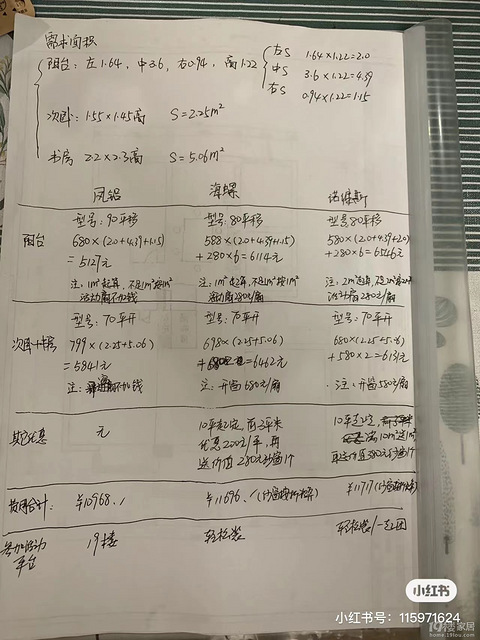 需求面积
阳台: 左1.64, 中3.6, 右0.94, 高1.22
左S 1.64×1.22=2.0
中S 3.6×1.22=4.39
右S 0.94×1.22=1.15
次卧: 1.55×1.45高 S=2.25m²
书房 2.2×2.3高 S=5.06m²
凤铝 海螺 诺维斯
阳台
型号: 90平移
680×(2.0+4.39+1.15)
=5127元
注: 1m²起算, 不足1m²按1m²
活动扇不加钱
型号: 80平移
588×(2.0+4.39+1.15)
+280×6=6114元
注: 1m²起算, 不足1m²按1m²
活动扇280元/扇
型号80平移
580×(2.0+4.39+2.0)
+280×6=6546元
注: 2m²起算, 不足2m²
280元/扇
次卧+书房
型号: 70平开
799×(2.25+5.06)
=5841元
注: 不加钱
型号: 70平开
698×(2.25+5.06)
=6462元
注: 开窗680元/扇
型号: 70平开
680×(2.25+5.06)
+580×2=6131元
注: 开窗580元/扇
其它优惠
元
10平起定
优惠200元/平, 再
送价值280元纱窗1个
10平起定
满10m²送1m²
费用合计: ¥10968./ ¥11696./ ¥11717
参加活动
平台
19楼 轻松装 轻松装/一起团
小红书
小红书号: 115971624
19楼家居
home.19lou.com